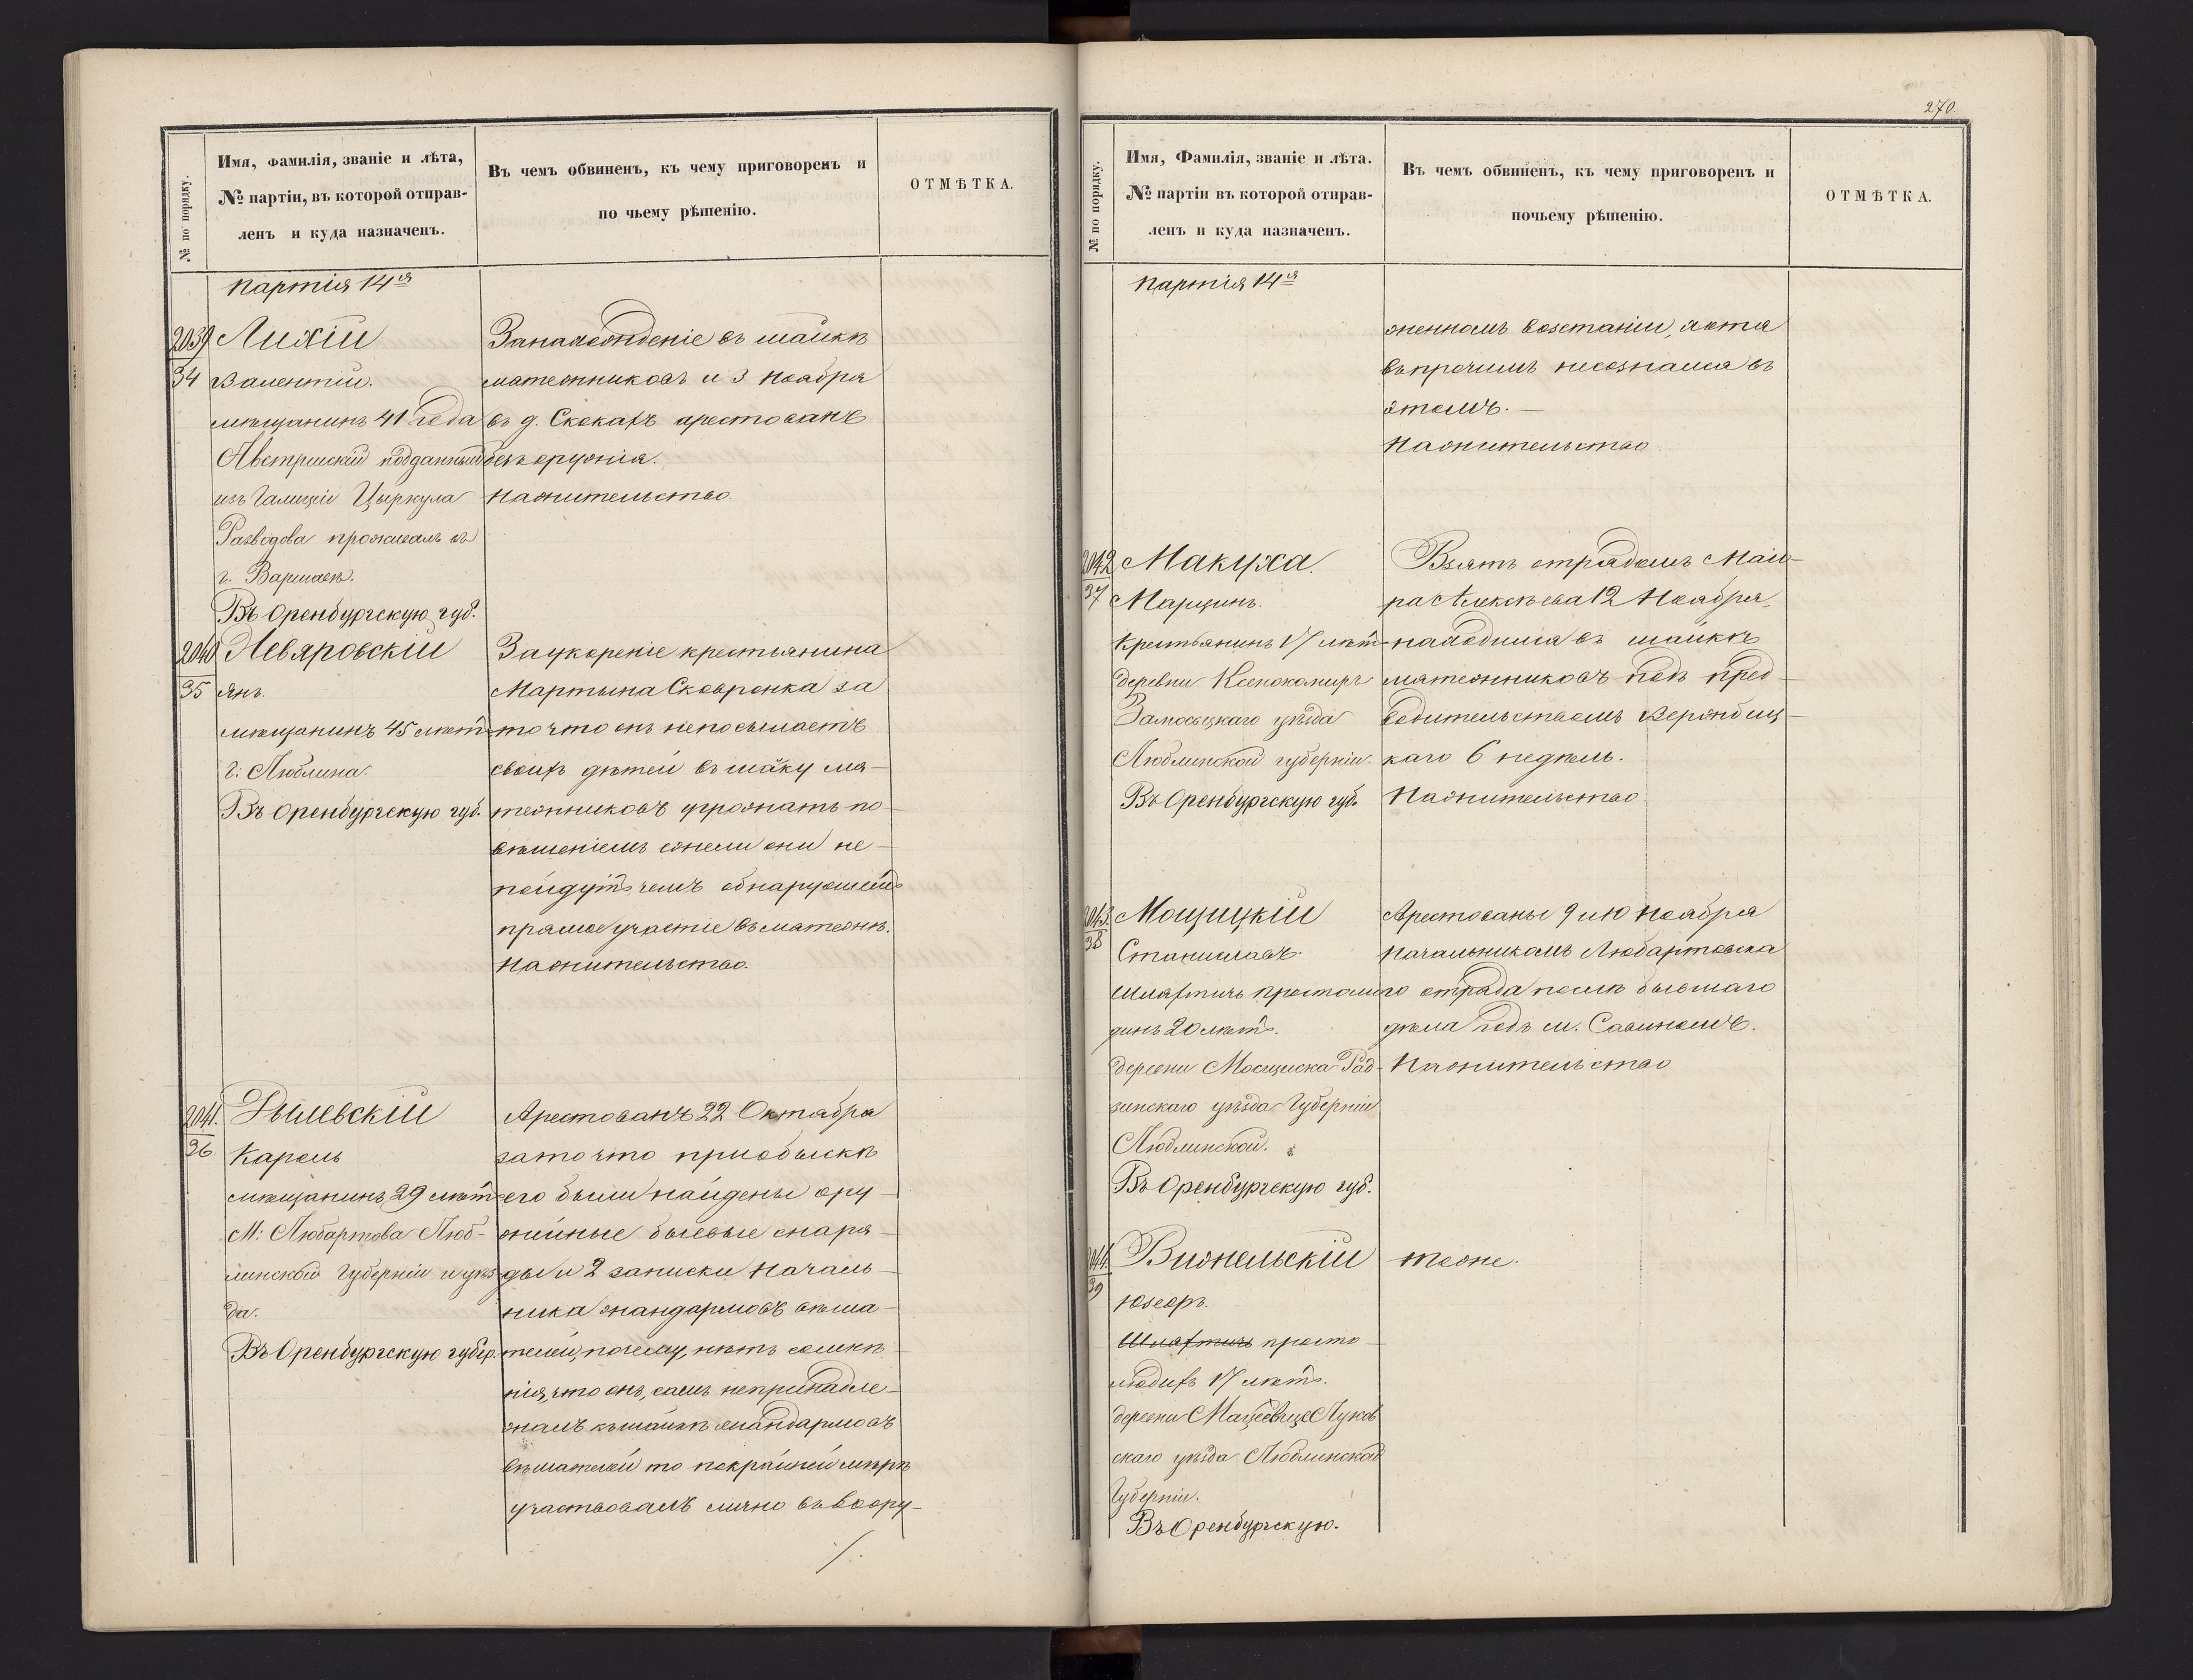 270.
№ по порядку.
Имя, фамилія, званіе и лѣта,
№ партіи, въ которой отправ-
ленъ и куда назначенъ.
Въ чемъ обвиненъ, къ чему приговоренъ и
по чьему рѣшенію.
ОТМѢТКА.
Партія 14я
2039/34
Лихій
Валентій.
мѣщанинъ 41 года
Австрійскій подданный
изъ Галиціи Цыркула
Развадова проживалъ въ
г. Варшавѣ.
Въ Оренбургскую губ.
За нахожденіе въ шайкѣ
мятежниковъ и 3 Ноября
въ д. Скокахъ арестованъ
безъ оружія.
На жительство.
2040/35
Невяровскій
Янъ.
мѣщанинъ 45 лѣтъ
г: Люблина.
Въ Оренбургскую губ.
За укореніе крестьянина
Мартына Сковронка за
то что онъ непосылаетъ
своихъ дѣтей въ шаку мя-
тежниковъ угрожать по-
вѣшеніемъ ежели они не-
пойдутъ чемъ обнаружилъ
прямое участіе въ мятежѣ.
На жительство.
2041./36
Дылевскій
Кароль
мѣщанинъ 29 лѣтъ
М: Любартова Люб-
линской Губерніи и уѣз
да.
Въ Оренбургскую губер.
Арестованъ 22 Октября
за то что при обыскѣ
его были найдены ору-
жейные боевые снаря-
ды и 2 записки Началь-
ника жандармовъ вѣша-
телей, почему, нѣтъ сомнѣ
нія, что онъ, если непринадле-
жалъ къ шайкѣ жандармовъ
вѣшателей то покрайней мѣрѣ
участвовалъ лично въ воору-
/.
№ по порядку.
Имя, Фамилія, званіе и лѣта.
№ партіи въ которой отправ-
ленъ и куда назначенъ.
Въ чемъ обвиненъ, къ чему приговоренъ и
почьему рѣшенію.
ОТМѢТКА.
Партія 14я
женномъ возстаніи, хотя
въпрочемъ несознался въ
этомъ.—
На жительство.
2042/37
Макуха.
Марцинъ.
Крестьянинъ 17 лѣтъ
деревни Ксенокомиръ
Замосцкаго уѣзда
Люблинской губерніи.
Въ Оренбургскую губ.
Взятъ отрядомъ Маіо-
ра Алексѣева 12 Ноября,
находился въ шайкѣ
мятежниковъ подъ пред-
водительствомъ Вержбиц-
каго 6 недѣль.
На жительство.
2043./38
Мощицкій
Станиславъ.
Шляхтичъ простолю
динъ 20 лѣтъ.
деревни Мосциска Рад-
зинскаго уѣзда Губерніи
Люблинской.
Въ Оренбургскую губ.
Арестованы 9 и 10 Ноября
Начальникомъ Любартовска
го отряда послѣ бывшаго
дѣла подъ м. Савиномъ.
На жительство
2044./39
Вижельскій
Юзефъ.
Шляхтичъ просто-
людихъ 17 лѣтъ.
деревни Мацеевице Луков
скаго уѣзда Люблинской
Губерніи.
Въ Оренбургскую.
тоже.